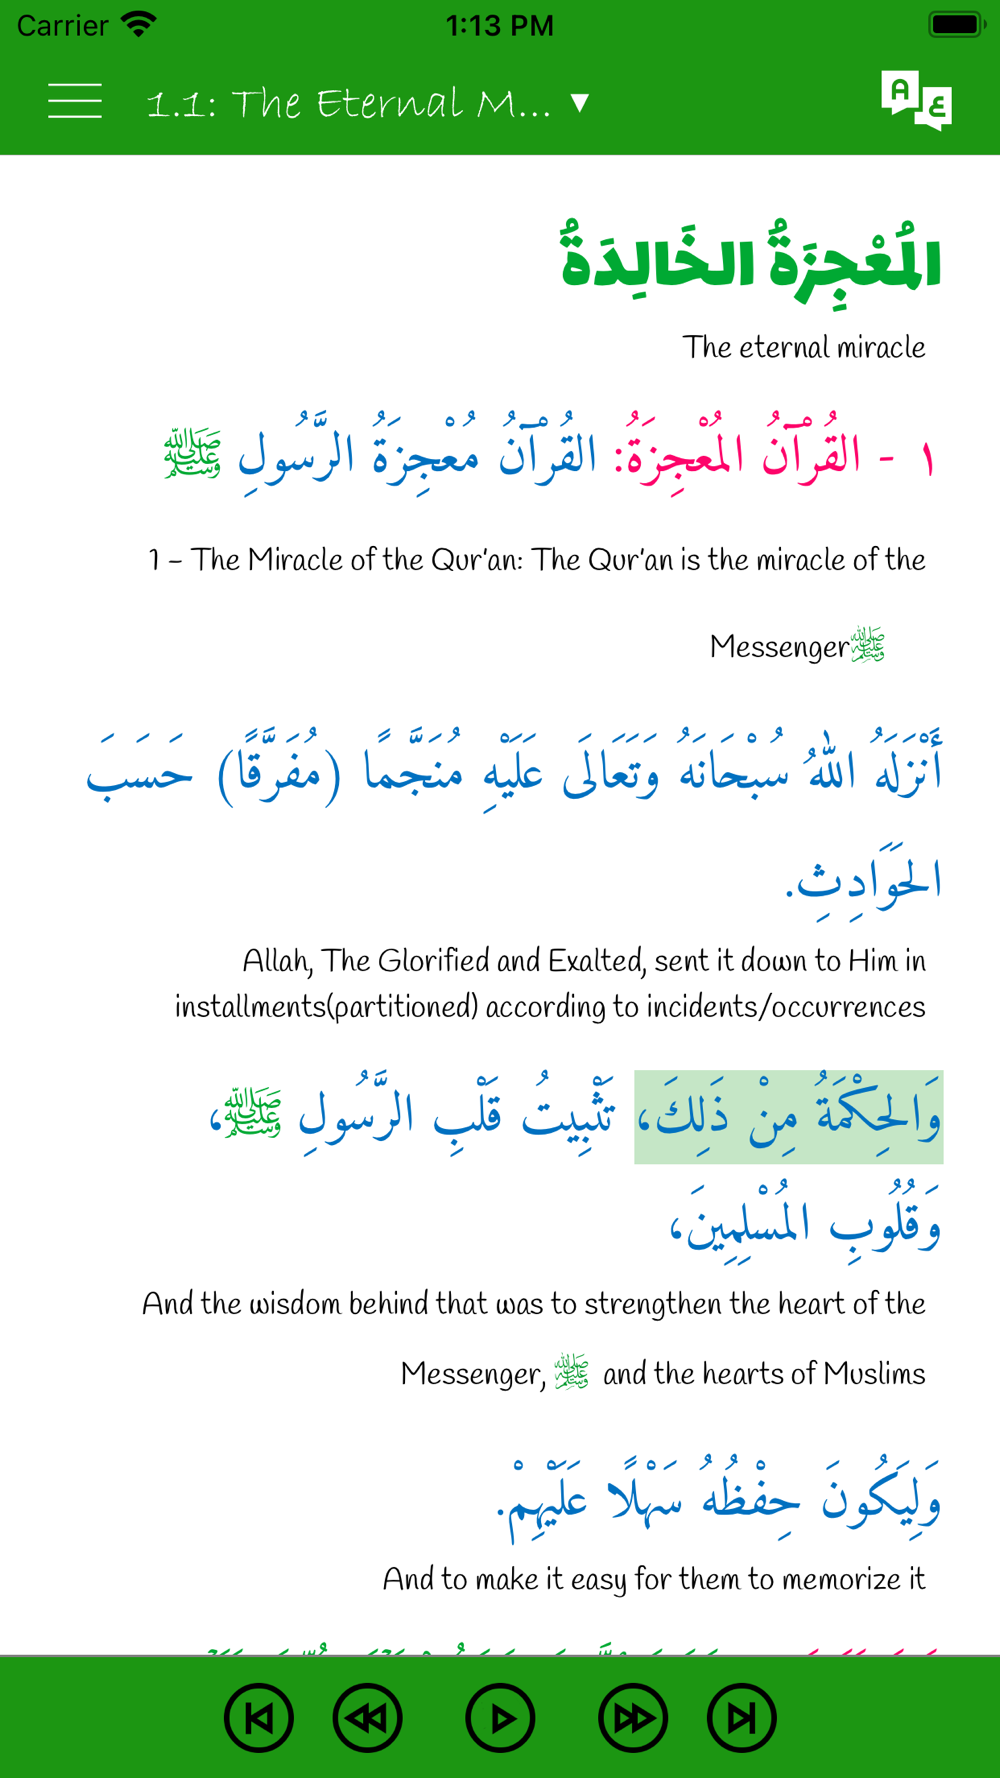 Carrier 1:13 PM
1.1: The Eternal M... ▼
المُعْجِزَةُ الخَالِدَةُ
The eternal miracle
١ - القُرْآنُ المُعْجِزَةُ: القُرْآنُ مُعْجِزَةُ الرَّسُولِ ﷺ
1 - The Miracle of the Qur'an: The Qur'an is the miracle of the
Messengerﷺ
أَنْزَلَهُ اللهُ سُبْحَانَهُ وَتَعَالَى عَلَيْهِ مُنَجَّمًا (مُفَرَّقًا) حَسَبَ
الحَوَادِثِ.
Allah, The Glorified and Exalted, sent it down to Him in
installments(partitioned) according to incidents/occurrences
وَالحِكْمَةُ مِنْ ذَلِكَ، تَثْبِيتُ قَلْبِ الرَّسُولِ ﷺ،
وَقُلُوبِ المُسْلِمِينَ،
And the wisdom behind that was to strengthen the heart of the
Messenger, ﷺ and the hearts of Muslims
وَلِيَكُونَ حِفْظُهُ سَهْلًا عَلَيْهِمْ.
And to make it easy for them to memorize it